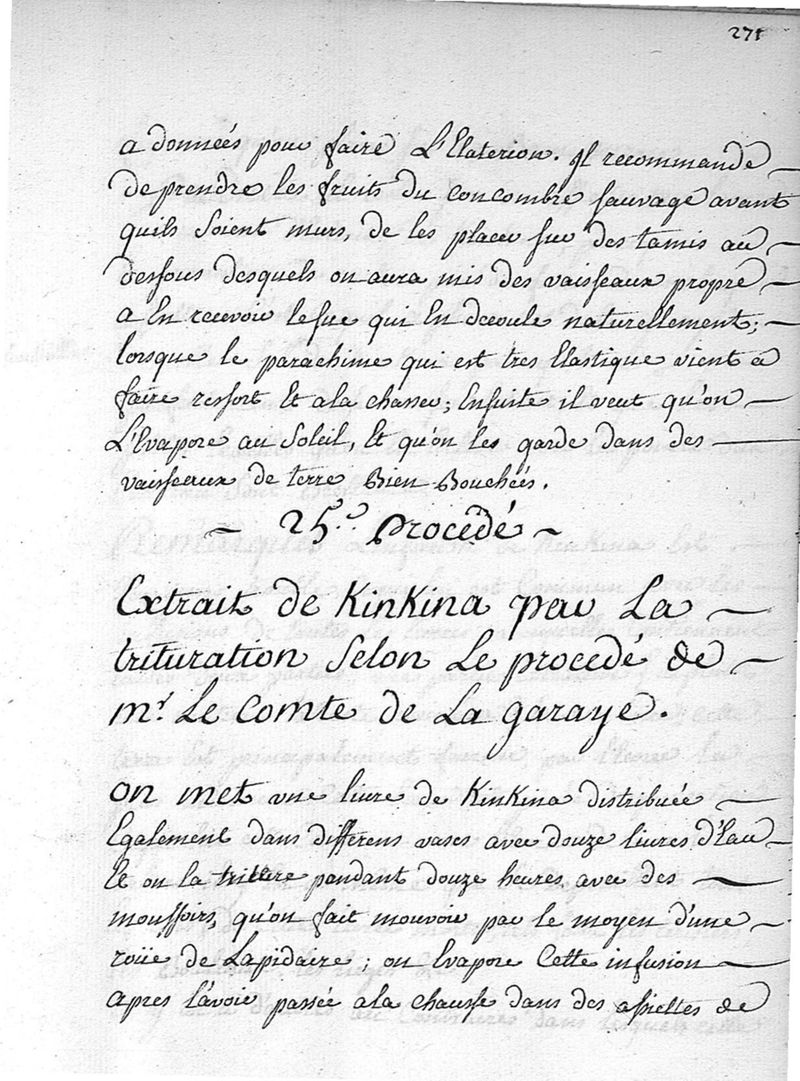 271
a données pour faire L'Elaterion. Il recommande
de prendre les fruits du concombre sauvage avant
quils soient murs, de les placer sur des tamis au
dessous desquels on aura mis des vaisseaux propre
a En recevoir le suc qui En decoule naturellement;
lorsque le parachime qui est tres Elastique vient a
faire ressort Et a la chasser; Ensuite il veut qu'on
L'Evapore au Soleil, Et qu'on les garde dans des
vaisseaux de terre Bien Bouchéés.
25.e Procédé
Extrait de KinKina par La
trituration Selon Le procedé de
mr. Le Comte de La garaye.
on met une livre de KinKina distribuée
Egalement dans differens vases avec douze livres d'Eau
Et on la triture pendant douze heures avec des
moussoirs, qu'on fait mouvoir par le moyen d'une
roüe de Lapidaire; on Evapore Cette infusion
apres l'avoir passée a la chausse dans des assiettes de